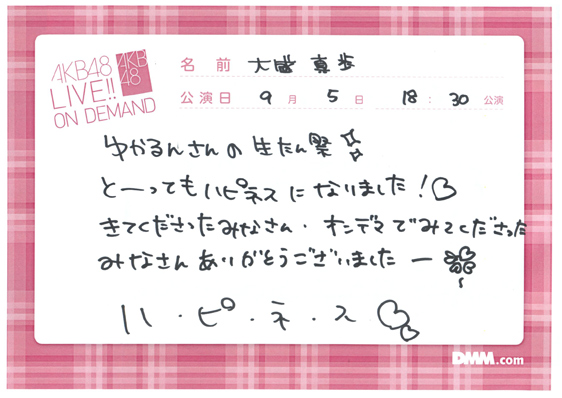 AKB48
LIVE!!
ON DEMAND
AKB
48
名前 大盛真歩
公演日 9月5日 18:30公演
ゆかるんさんの生たん祭
とーってもハピネスになりました!♡
きてくださったみなさん・オンデマでみてくださった
みなさんありがとうございましたー
ハ・ピ・ネ・ス♡
DMM.com